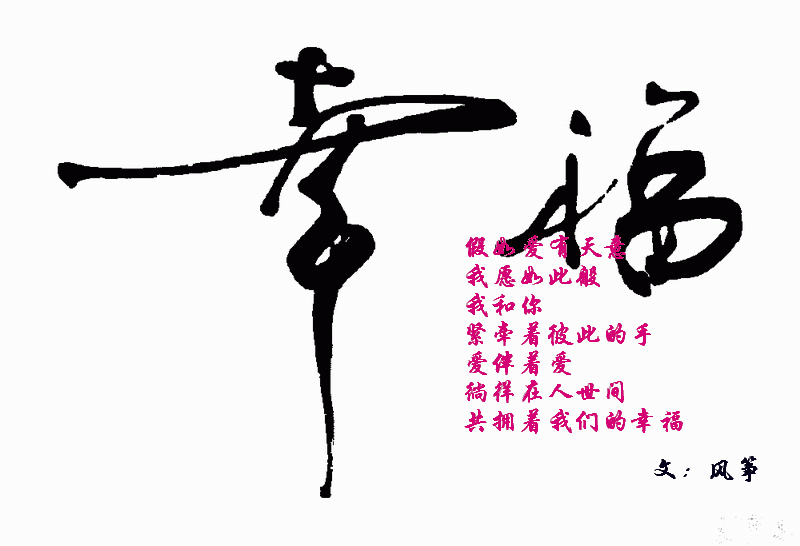 幸福
假如爱有天意
我愿如此般
我和你
紧牵着彼此的手
爱伴着爱
徜徉在人世间
共拥着我们的幸福
文：风筝